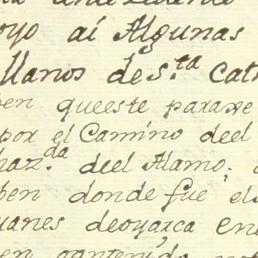 oyo ai Algunas
llanos de S.ta Cat
ben queeste paraxe
por el Camino deel
haz.da deel Alamo:
ben donde fue el
uanes deoyarca en